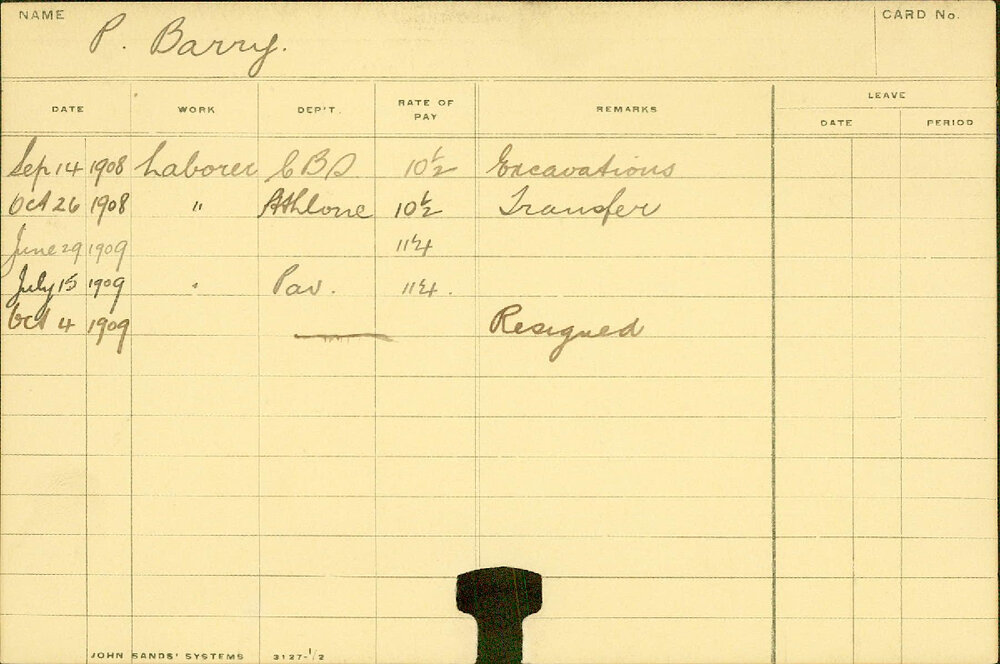 NAME CARD No.
P. Barry.
DATE WORK DEP'T. RATE OF PAY REMARKS LEAVE
DATE PERIOD
Sep 14 1908 Laborer 10½ Excavations
Oct 26 1908 " Athlone 10½ Transfer
June 29 1909 11¼
July 15 1909 " Pav. 11¼.
Oct 4 1909 Resigned
JOHN SANDS' SYSTEMS 3127-1/2